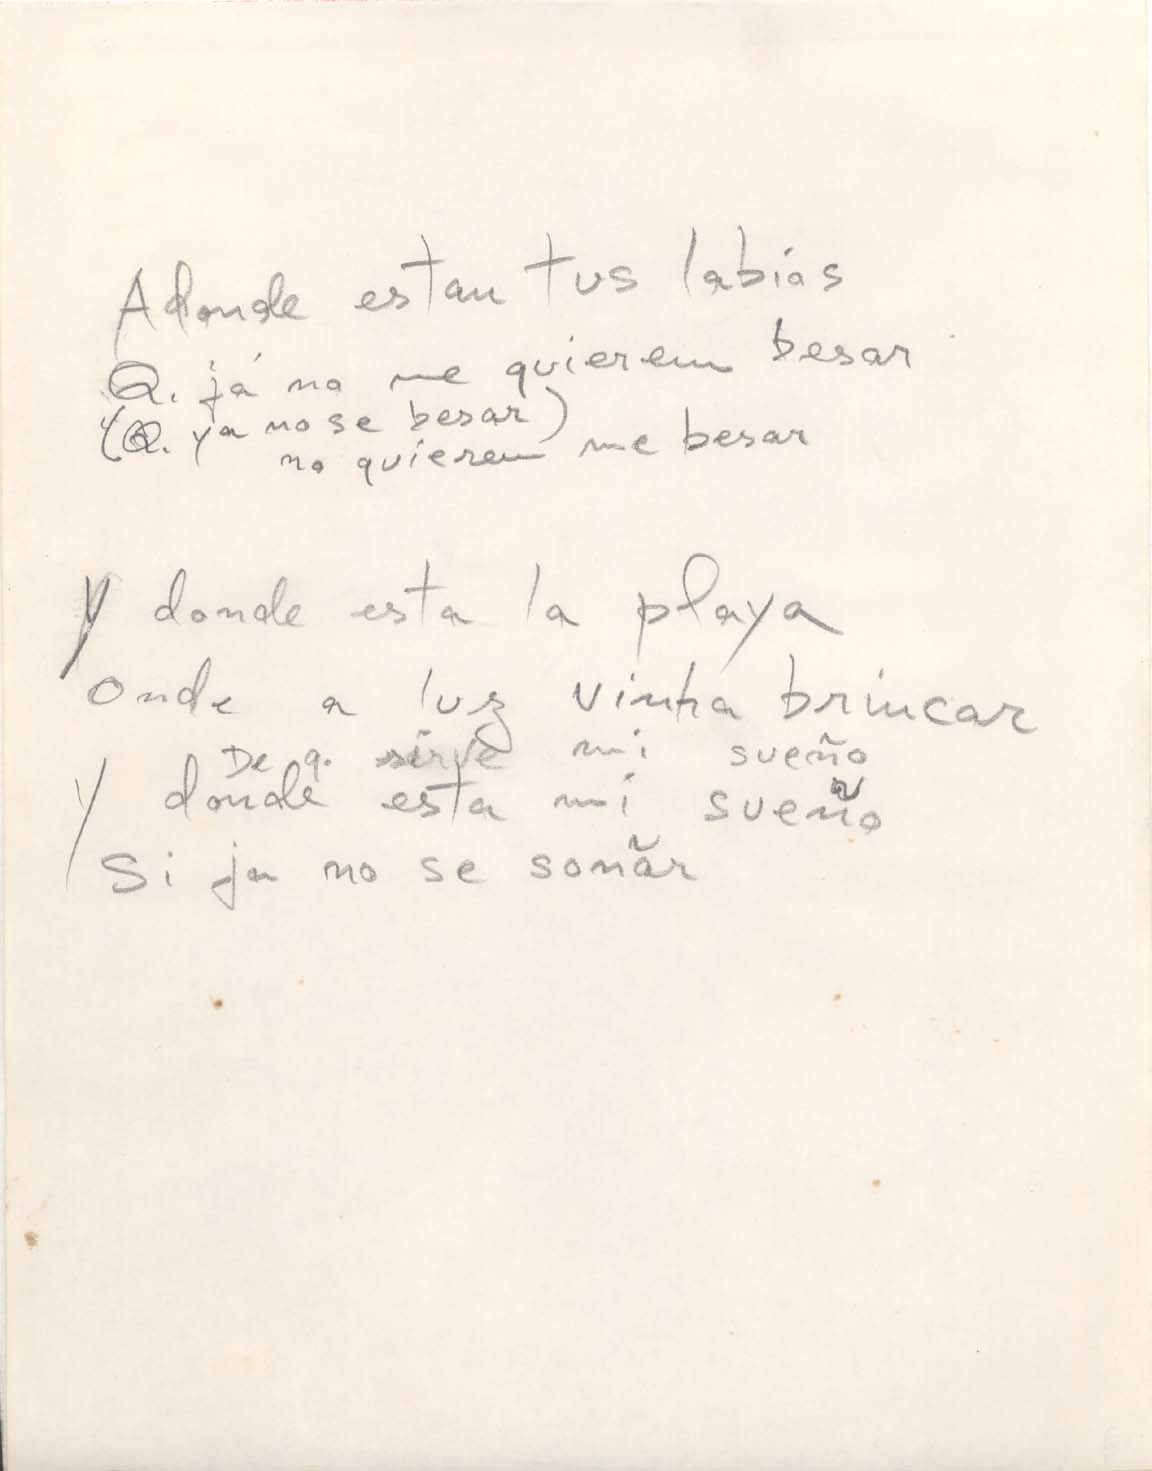 Adonde estan tus labios
Q. já no me quierem besar
(Q. ya no se besar)
no quierem me besar
Y donde esta la playa
Onde a luz vinha brincar
De q. sirve mi sueño
Y donde esta mi sueño
Si ja no se soñar